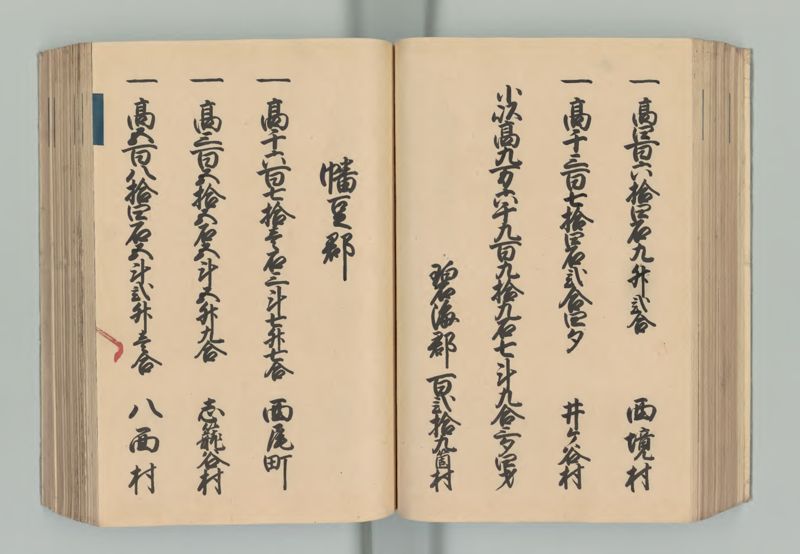 一 高四百六拾四石九升弐合 西境村
一 高千三百七拾四石弐合四夕 井ヶ谷村
小以高九万六千九百九拾九石七斗九合三夕四才
碧海郡 百弐拾九箇村
幡豆郡
一 高千六百七拾壱石三斗七升七合 西尾町
一 高三百五拾五石八斗五升九合 志籠谷村
一 高五百八拾四石五斗弐升壱合 八面村